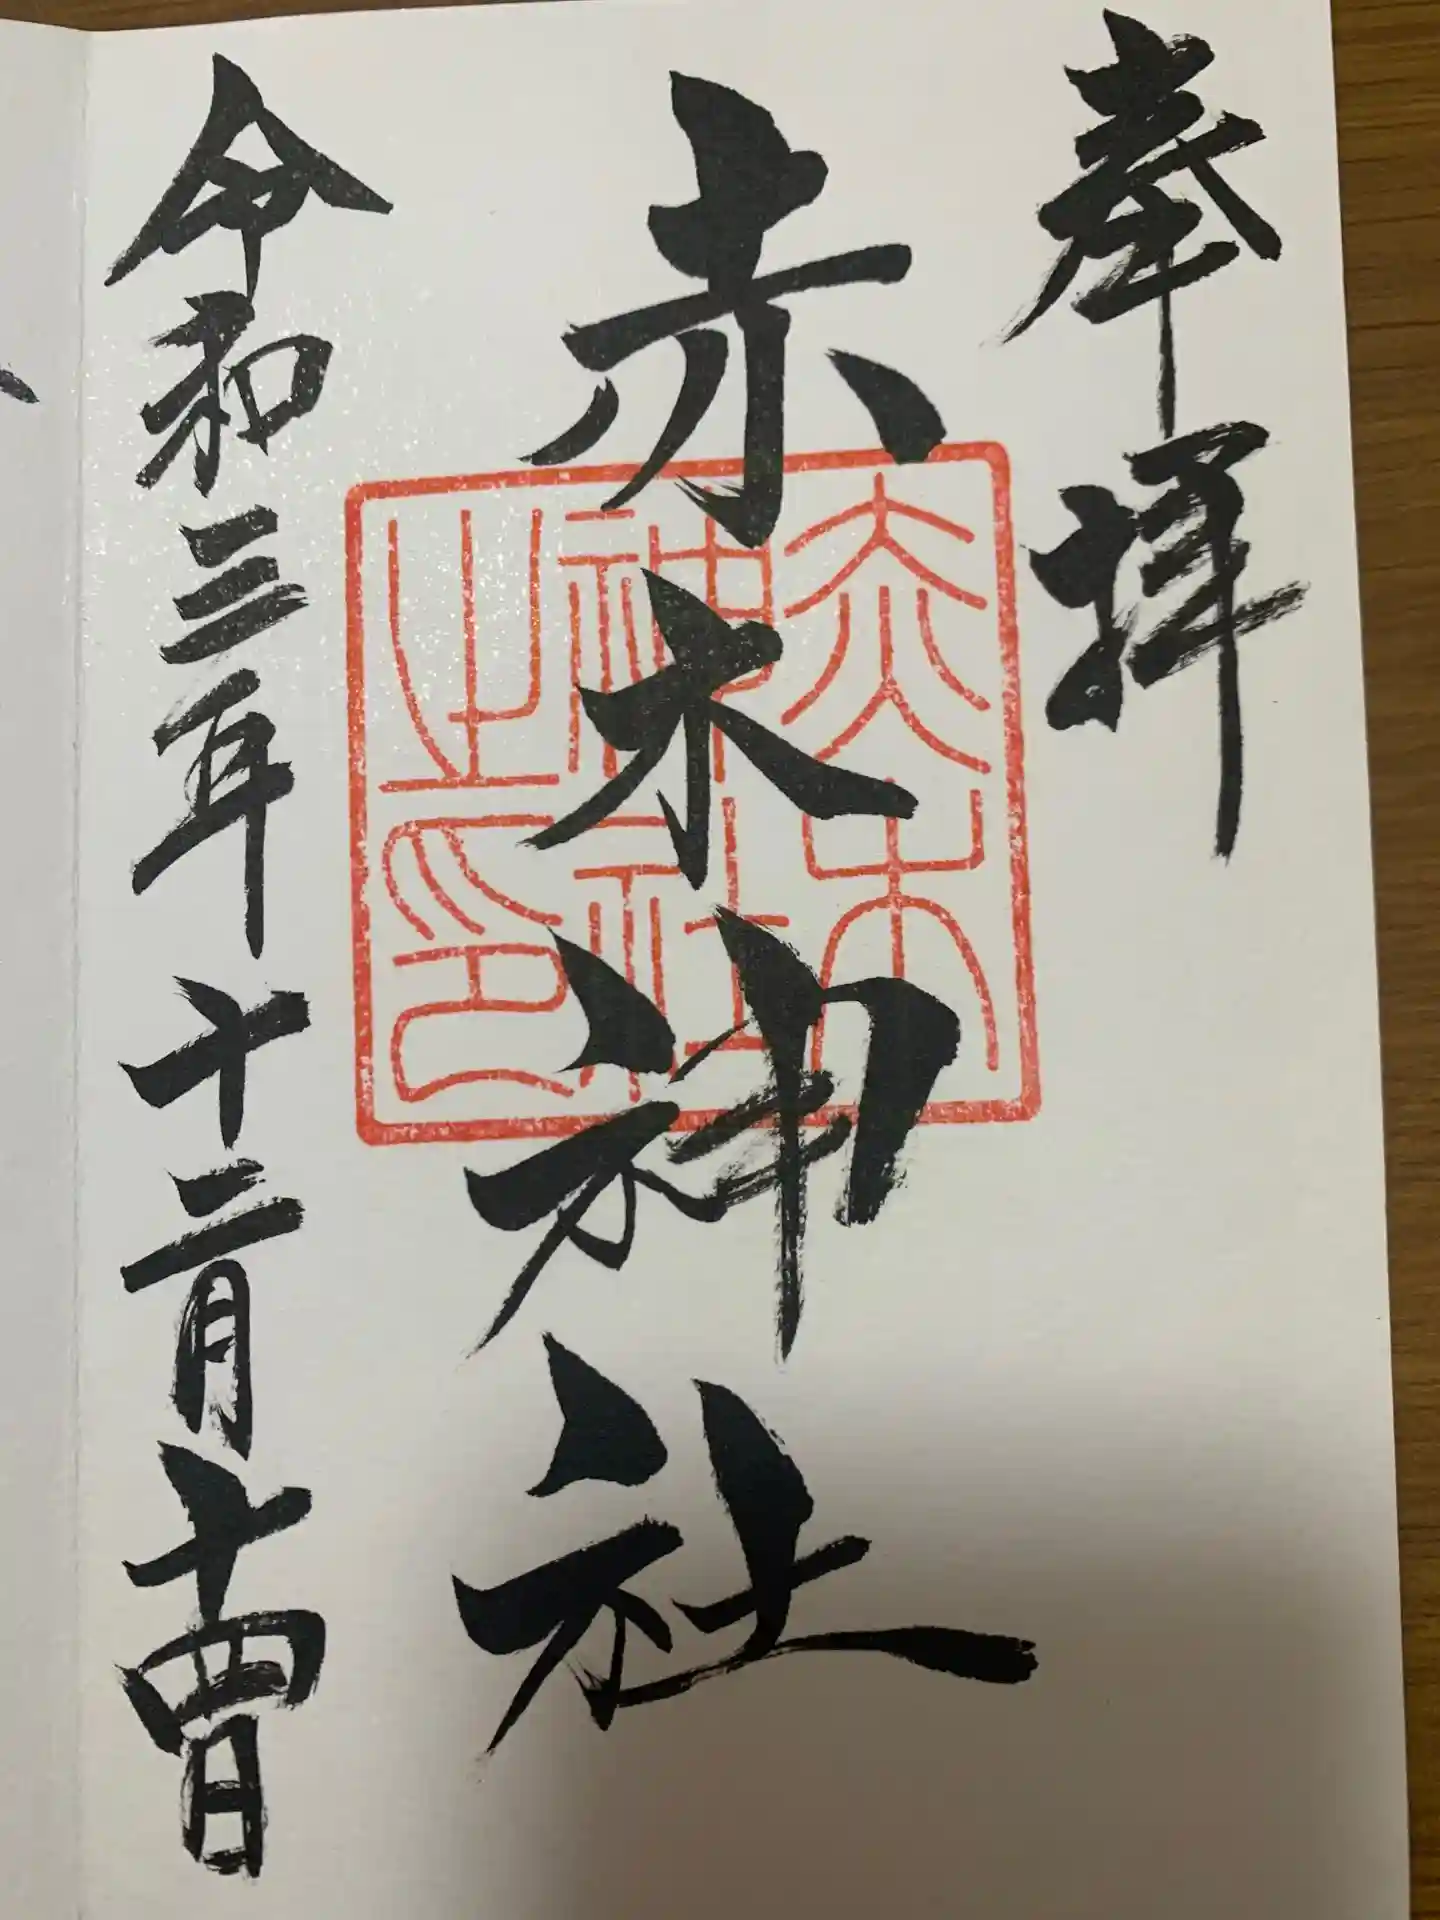 奉拝
赤木神社
赤木
神社
之印
令和三年十二月十四日